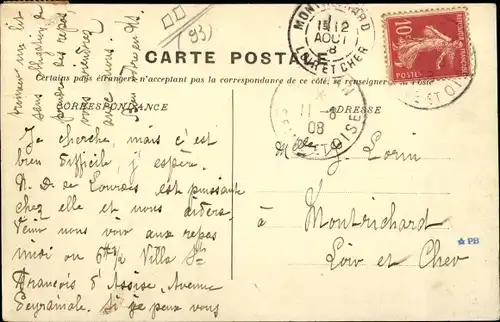 (93)
CARTE POSTALE
Certains pays étrangers n'acceptant pas la correspondance de ce côté, se renseigner
CORRESPONDANCE
ADRESSE
MONTRICHARD
12
AOUT
LOIR ET CHER
10
POSTES
11-8
08
OISE
ET OISE
Je cherche, mais c'est
bien difficile, j'espère.
N. D. de Lourdes est puissante
chez elle et nous aidera.
Venir nous voir aux repas
midi ou 6h½ Villa St
François d'Assise, Avenue
Peyramale. Si je peux vous
trouver un lit
sans
prendre les repas
vous viendrez
avec nous
Bien
Mlle J. Lorin
à Montrichard
Loir et Cher
PB